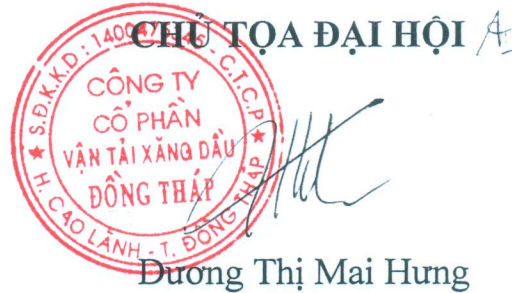 CHỦ TỌA ĐẠI HỘI
CÔNG TY
CỔ PHẦN
VẬN TẢI XĂNG DẦU
ĐỒNG THÁP
C.T.C.P
H. CAO LÃNH - T. ĐỒNG THÁP
Dương Thị Mai Hưng